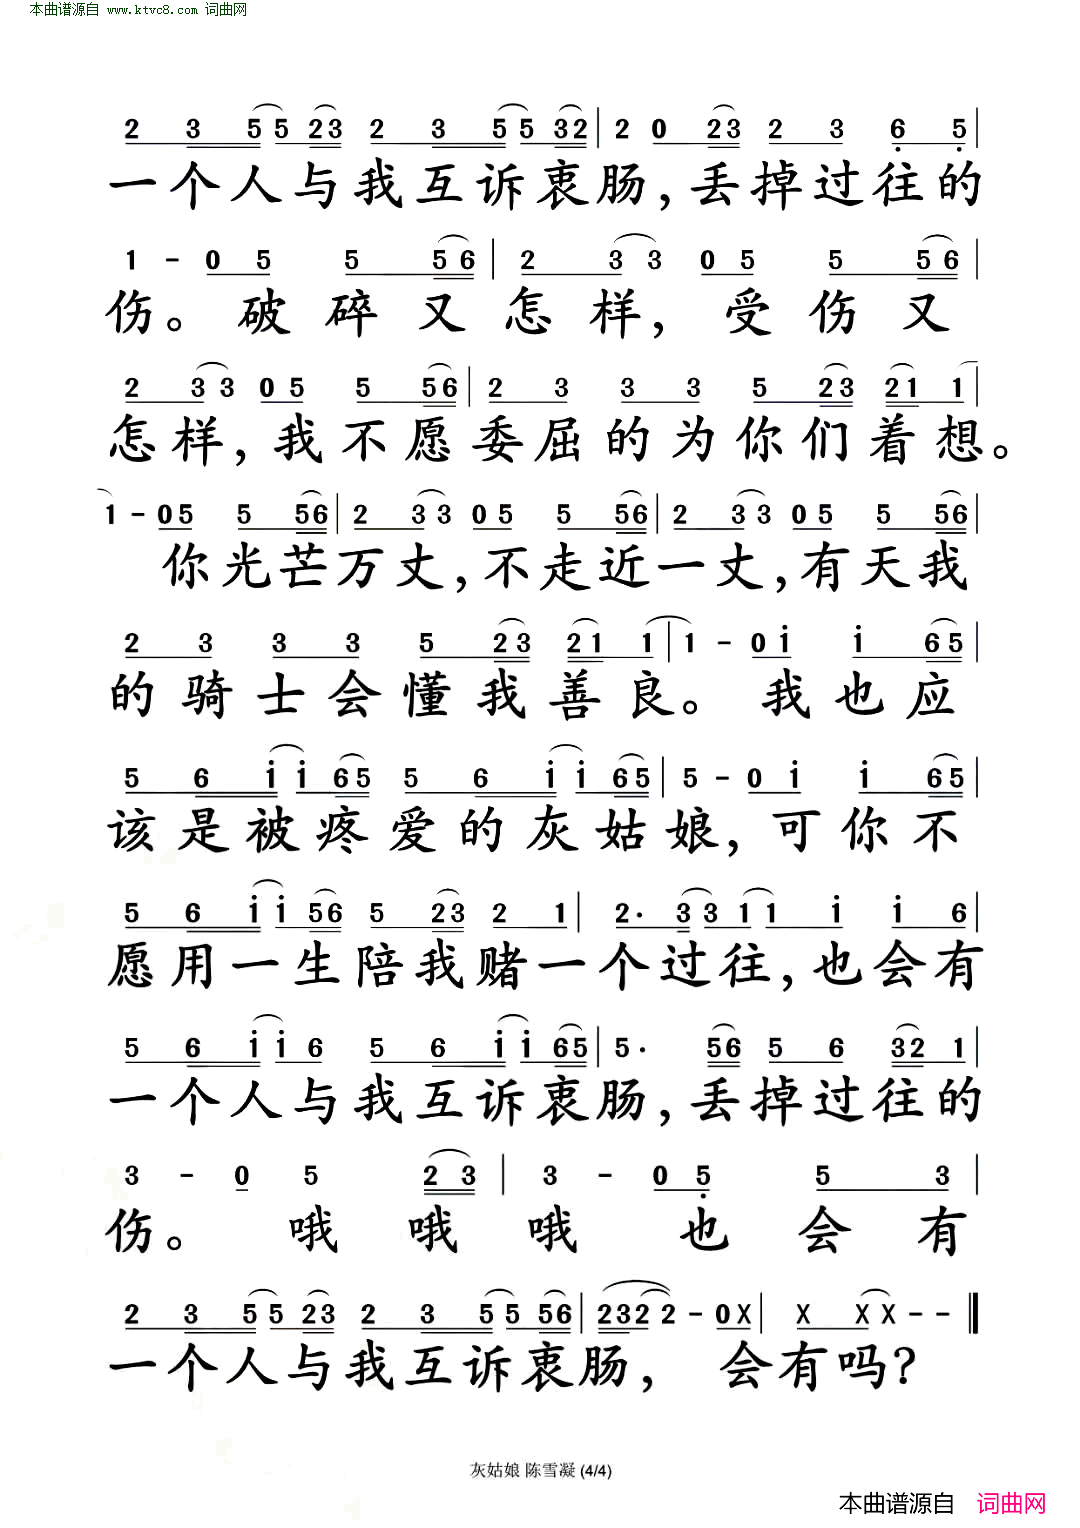 本曲谱源自 www.ktvc8.com 词曲网
2 3 5 5 23 2 3 5 5 32 | 2 0 23 2 3 6 5 |
一个人与我互诉衷肠，丢掉过往的
1 - 0 5 5 56 | 2 3 3 0 5 5 56 |
伤。破碎又怎样，受伤又
2 3 3 0 5 5 56 | 2 3 3 3 5 23 21 1 |
怎样，我不愿委屈的为你们着想。
1 - 0 5 5 56 | 2 3 3 0 5 5 56 | 2 3 3 0 5 5 56 |
你光芒万丈，不走近一丈，有天我
2 3 3 3 5 23 21 1 | 1 - 0 i i 65 |
的骑士会懂我善良。我也应
5 6 i i 65 5 6 i i 65 | 5 - 0 i i 65 |
该是被疼爱的灰姑娘，可你不
5 6 i i 56 5 23 2 1 | 2· 3 3 1 1 i i 6 |
愿用一生陪我赌一个过往，也会有
5 6 i i 6 5 6 i i 65 | 5· 56 5 6 32 1 |
一个人与我互诉衷肠，丢掉过往的
3 - 0 5 2 3 | 3 - 0 5 5 3 |
伤。哦哦哦也会有
2 3 5 5 23 2 3 5 5 56 | 232 2 - 0X | X X X - - ‖
一个人与我互诉衷肠，会有吗？
灰姑娘 陈雪凝 (4/4)
本曲谱源自 词曲网